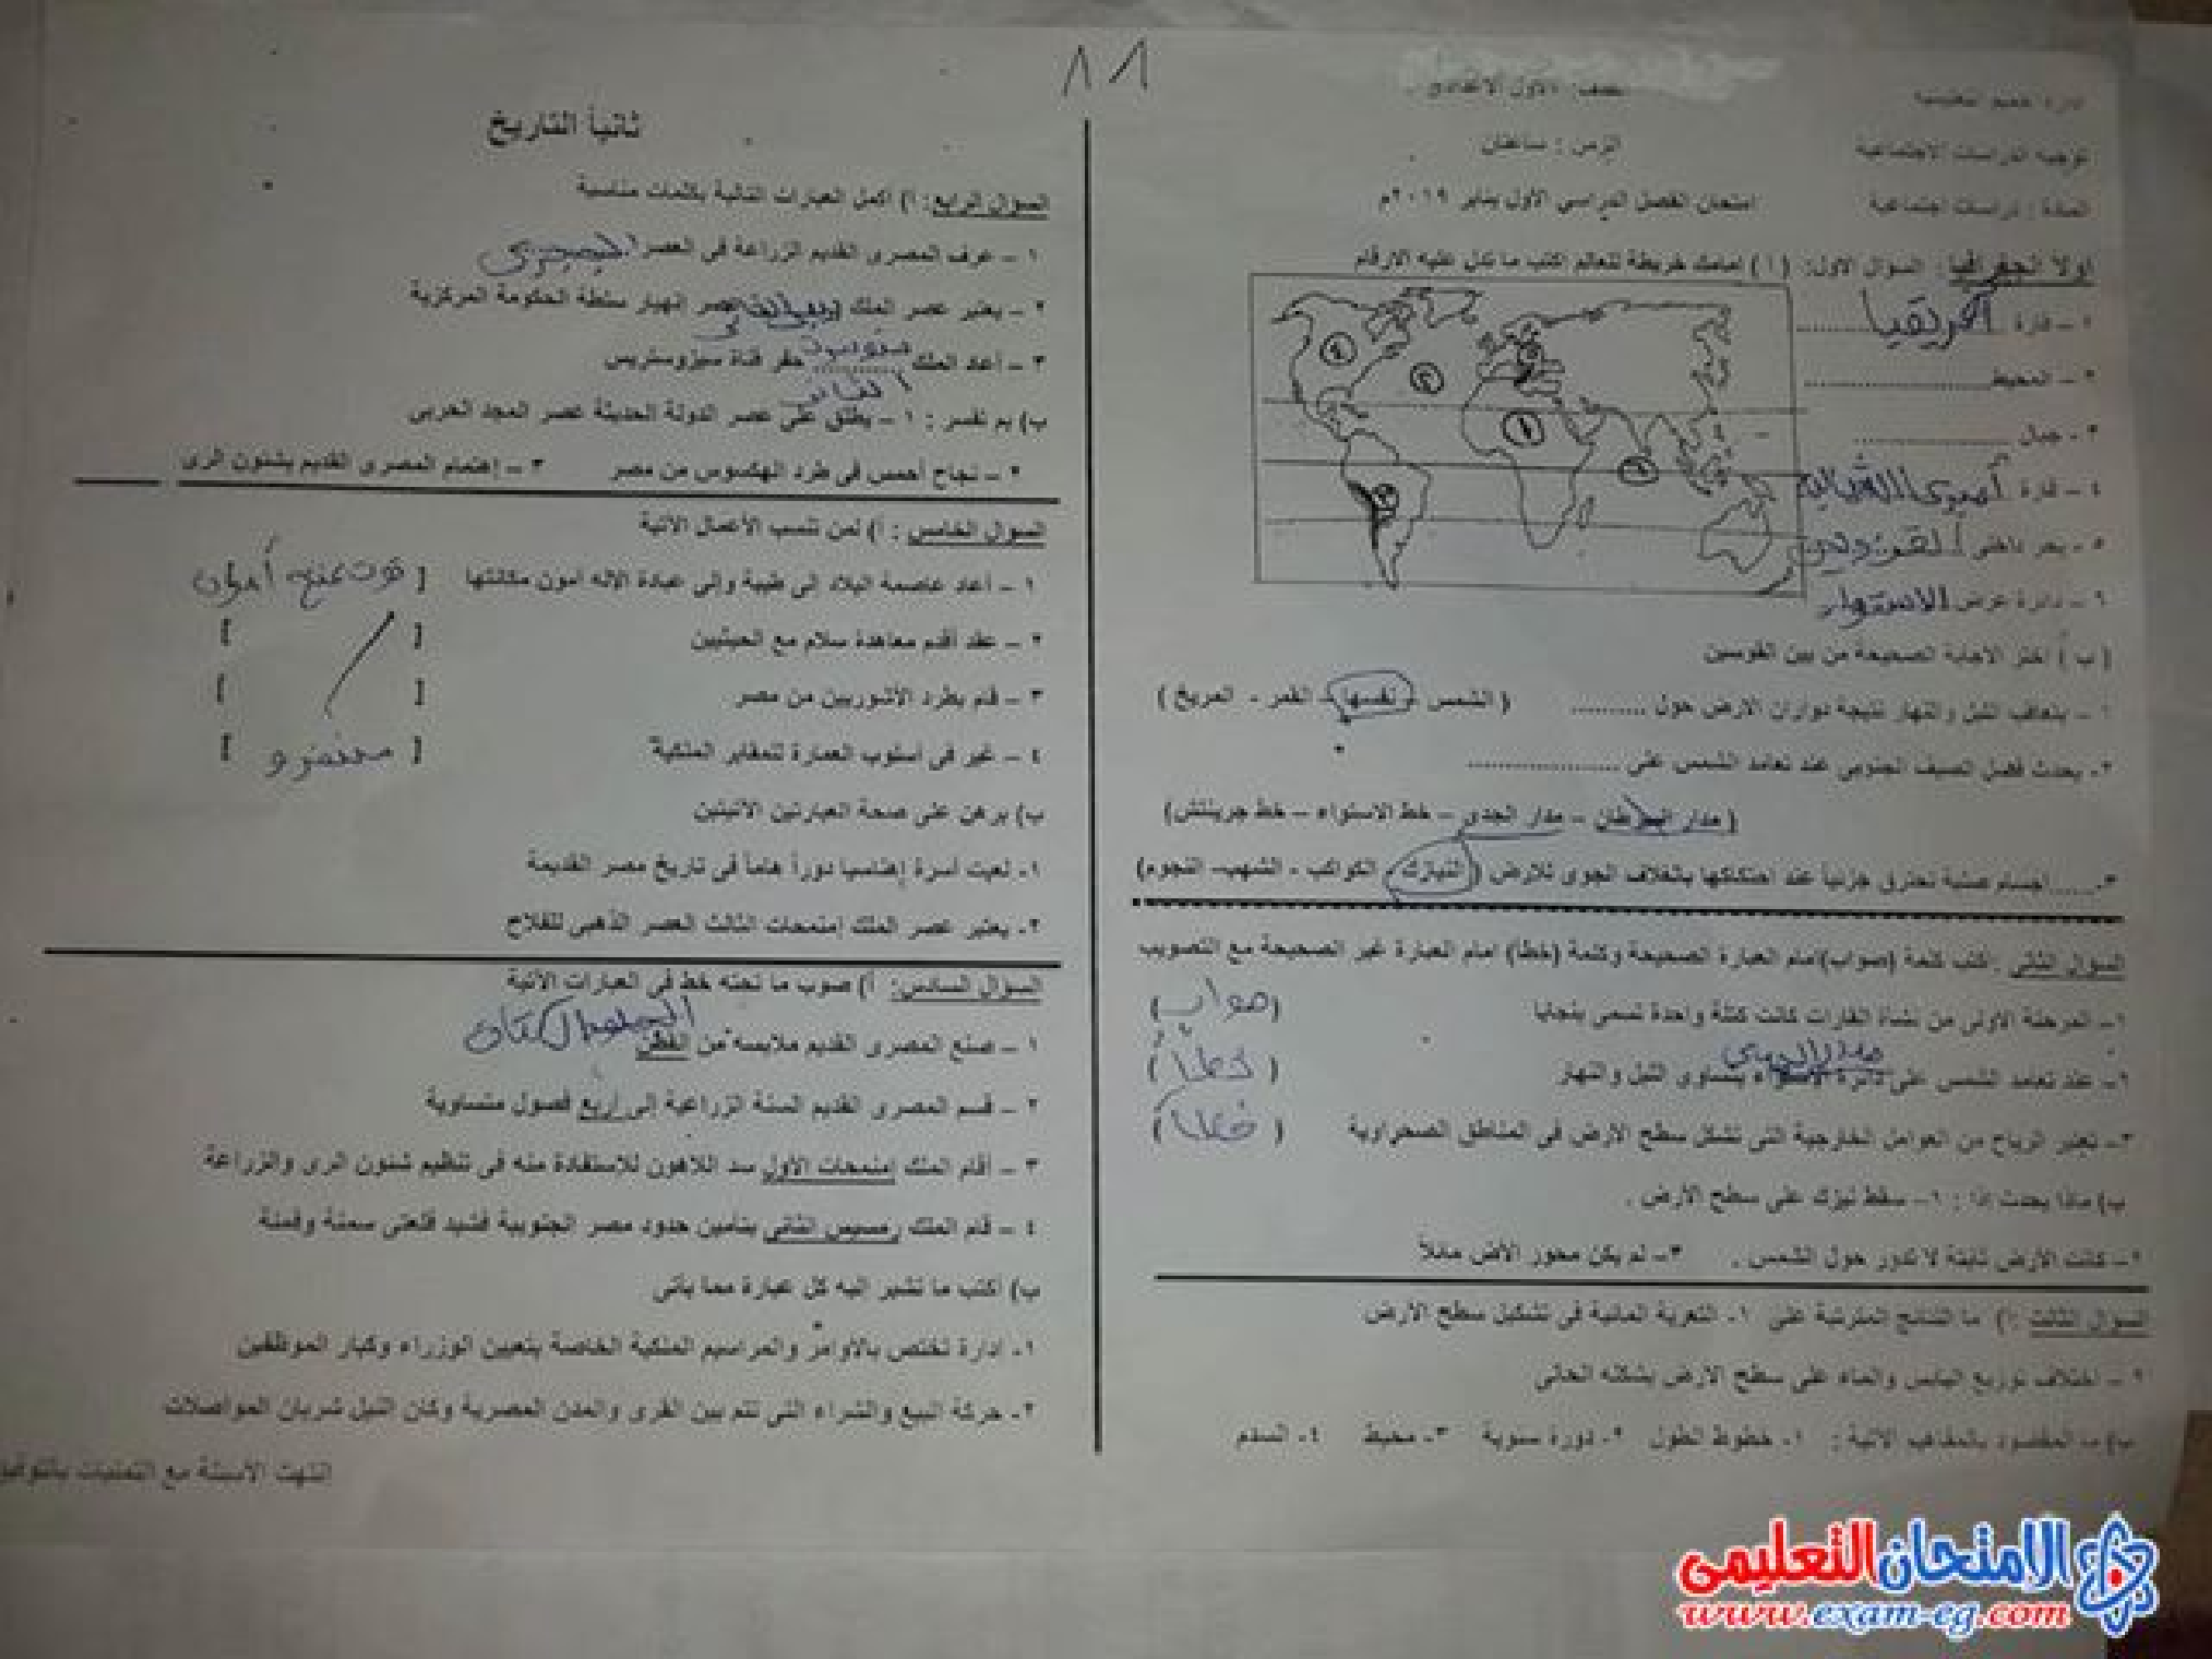 ١١
توجيه الدراسات الاجتماعية
الصف: الأول الاعدادى
الزمن : ساعتان
المادة : دراسات اجتماعية
امتحان الفصل الدراسي الأول يناير ٢٠١٩م
اولا الجغرافيا : السؤال الاول: ( أ ) امامك خريطة للعالم اكتب ما تدل عليه الارقام
١ – قارة أفريقيا
٢ – المحيط ..............
٣ - جبال ..............
٤ – قارة أمريكا الشمالية
٥ - بحر داخلى
٦ – دائرة عرض الاستواء
( ب ) اختر الاجابة الصحيحة من بين القوسين
١ – يتعاقب الليل والنهار نتيجة دوران الارض حول .......... ( الشمس - نفسها - القمر - المريخ )
٢- يحدث فصل الصيف الجنوبى عند تعامد الشمس على ..............
( مدار السرطان – مدار الجدى – خط الاستواء – خط جرينتش)
٣-......اجسام صلبة تحترق جزئيا عند احتكاكها بالغلاف الجوى للارض ( النيازك - الكواكب - الشهب– النجوم)
السؤال الثانى : اكتب كلمة (صواب)امام العبارة الصحيحة وكلمة (خطأ) امام العبارة غير الصحيحة مع التصويب
١– المرحلة الاولى من نشأة القارات كانت كتلة واحدة تسمى بنجايا (صواب)
٢– عند تعامد الشمس على دائرة يتساوى الليل والنهار ( خطأ )
٣– تعتبر الرياح من العوامل الخارجية التى تشكل سطح الارض فى المناطق الصحراوية ( خطأ )
ب) ماذا يحدث اذا : ١– سقط نيزك على سطح الارض .
٢– كانت الأرض ثابتة لا تدور حول الشمس . ٣– لم يكن محور الأض مائلا
السؤال الثالث : أ) ما النتائج المترتبة على ١- التعرية المائية فى تشكيل سطح الأرض
٢ – اختلاف توزيع اليابس والماء على سطح الارض بشكله الحالى
ب) ما المقصود بالمفاهيم الاتية : ١- خطوط الطول ٢- دورة سنوية ٣- محيط ٤- السدم
ثانيأ التاريخ
السؤال الرابع: أ) أكمل العبارات التالية بكلمات مناسبة
١ – عرف المصرى القديم الزراعة فى العصر الحجرى
٢ – يعتبر عصر الملك عصر إنهيار سلطة الحكومة المركزية
٣ – أعاد الملك حفر قناة سيزوستريس
ب) بم تفسر : ١ – يطلق على عصر الدولة الحديثة عصر المجد الحربى
٢ – نجاح أحمس فى طرد الهكسوس من مصر ٣ – إهتمام المصرى القديم بشئون الرى
السؤال الخامس : أ) لمن تنسب الأعمال الأتية
١ – أعاد عاصمة البلاد إلى طيبة وإلى عبادة الأله أمون مكانتها [ توت عنخ أمون
٢ – عقد أقدم معاهدة سلام مع الحيثيين [ ]
٣ – قام بطرد الأشوريين من مصر [ ]
٤ – غير فى أسلوب العمارة للمقابر الملكية [ ]
ب) برهن على صحة العبارتين الأتيتين
١- لعبت أسرة إهناسيا دورأ هامأ فى تاريخ مصر القديمة
٢- يعتبر عصر الملك إمنمحات الثالث العصر الذهبى للفلاح
السؤال السادس: أ) صوب ما تحته خط فى العبارات الأتية
١ – صنع المصرى القديم ملابسه من القطن
٢ – قسم المصرى القديم السنة الزراعية إلى أربع فصول متساوية
٣ – أقام الملك إمنمحات الأول سد اللاهون للإستفادة منه فى تنظيم شئون الرى والزراعة
٤ – قام الملك رمسيس الثانى بتأمين حدود مصر الجنوبية فشيد قلعتى سمنة وقمنة
ب) أكتب ما تشير اليه كل عبارة مما يأتى
١- إدارة تختص بالأوامر والمراسيم الملكية الخاصة بتعيين الوزراء وكبار الموظفين
٢- حركة البيع والشراء التى تتم بين القرى والمدن المصرية وكان النيل شريان المواصلات
انتهت الأسئلة مع التمنيات بالتوفيق
الامتحان التعليمى
www.exam-eg.com